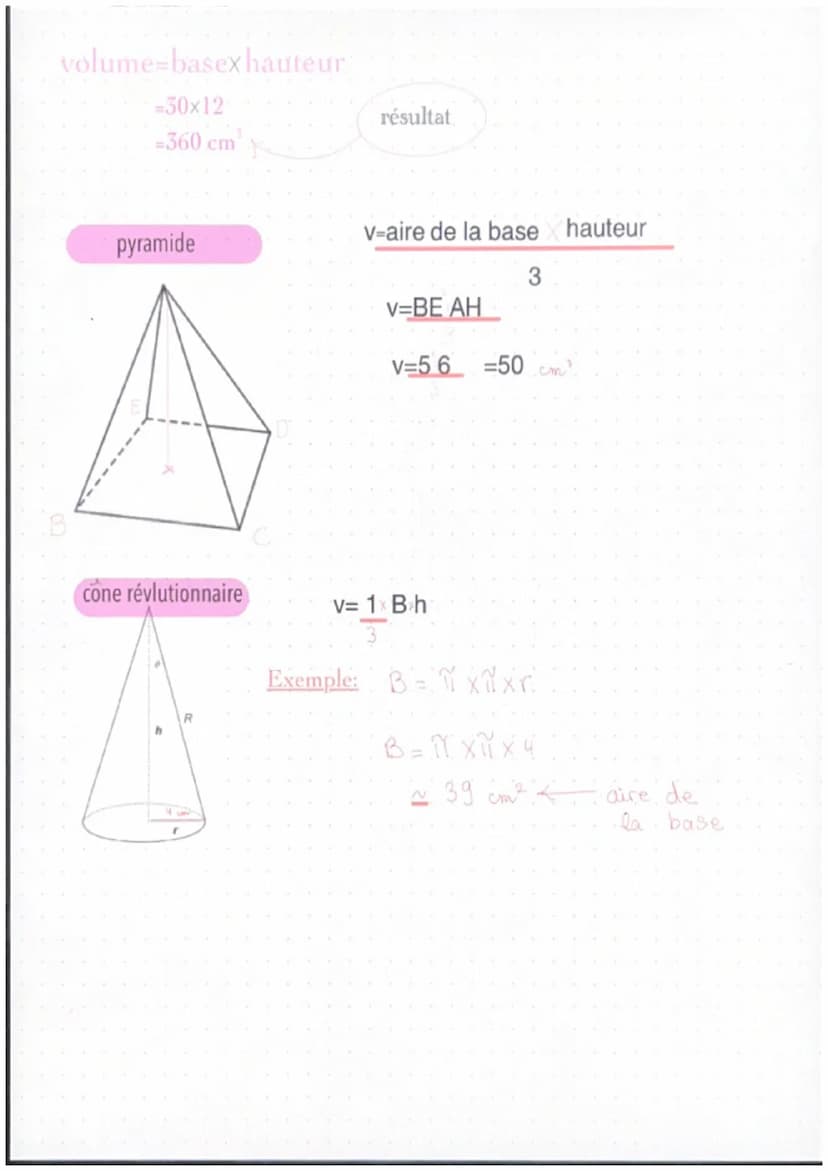 volume=base×hauteur
=30×12
=360 cm³
résultat
pyramide
v=aire de la base × hauteur
3
v=BE AH
v=5 6 =50 cm³
E
D
B
C
cône révlutionnaire
v= 1 × B×h
3
Exemple: B = π × π × r
R
h
B = π × π × 4
≃ 39 cm² ← aire de
la base
4 cm
r